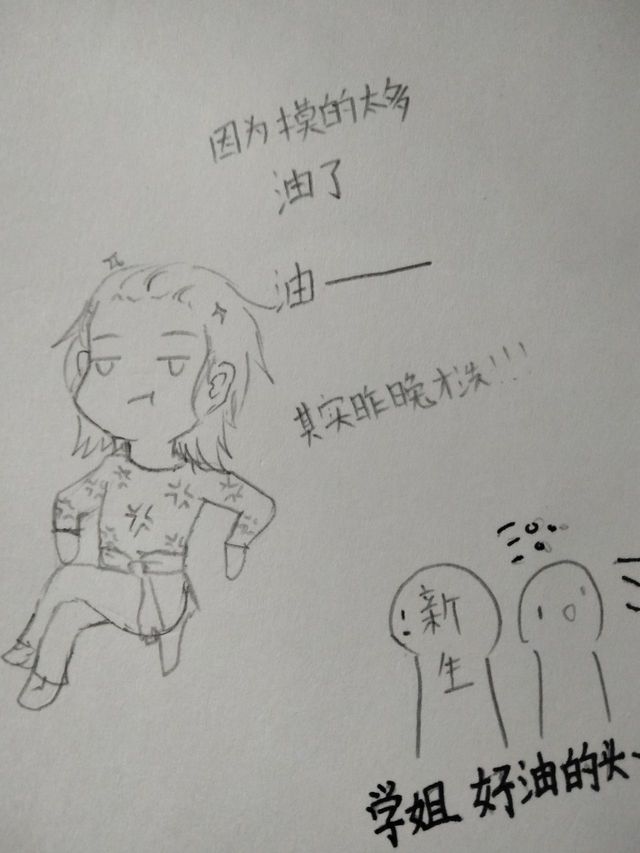 因为摸的太多
油了
油——
其实昨晚才洗!!!
新
生
学姐 好油的头、